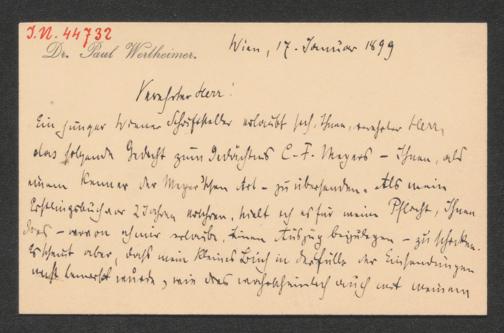 I.N. 44732
Dr. Paul Wertheimer.
Wien, 17. Januar 1899
Verehrter Herr!
Ein junger Wiener Schriftsteller erlaubt sich, Ihnen, verehrter Herr,
das folgende Gedicht zum Gedächtnis C. F. Meyers – Ihnen, als
einem Kenner der Meyer'schen Art – zu übersenden. Als mein
Erstlingsbuch vor 2 Jahren erschien, hielt ich es für meine Pflicht, Ihnen
dies – wovon ich mir erlaube, einen Auszug beizulegen – zu schicken.
aber, dass mein kleines Buch in der Fülle der Einsendungen
nicht bemerkt wurde, wie dies wahrscheinlich auch mit meinem